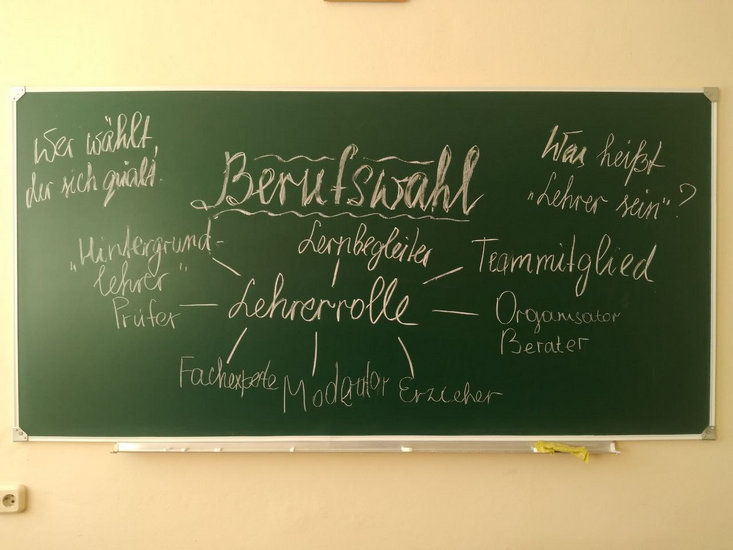 Wer wählt,
der sich quält.
Berufswahl
Was heißt
"Lehrer sein"?
"Hintergrund-
lehrer"
Lernbegleiter
Teammitglied
Prüfer
Lehrerrolle
Organisator
Berater
Fachexperte
Moderator
Erzieher